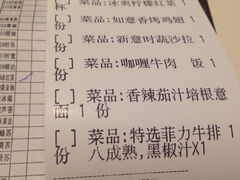 菜品:冰爽柠檬红茶 1
份
[ ] 菜品:如意香烤鸡翅 1
份
[ ] 菜品:新意时蔬沙拉 1
份
[ ] 菜品:咖喱牛肉 饭 1
份
[ ] 菜品:香辣茄汁培根意
面 1 份
[ ] 菜品:特选菲力牛排 1
份 八成熟,黑椒汁X1